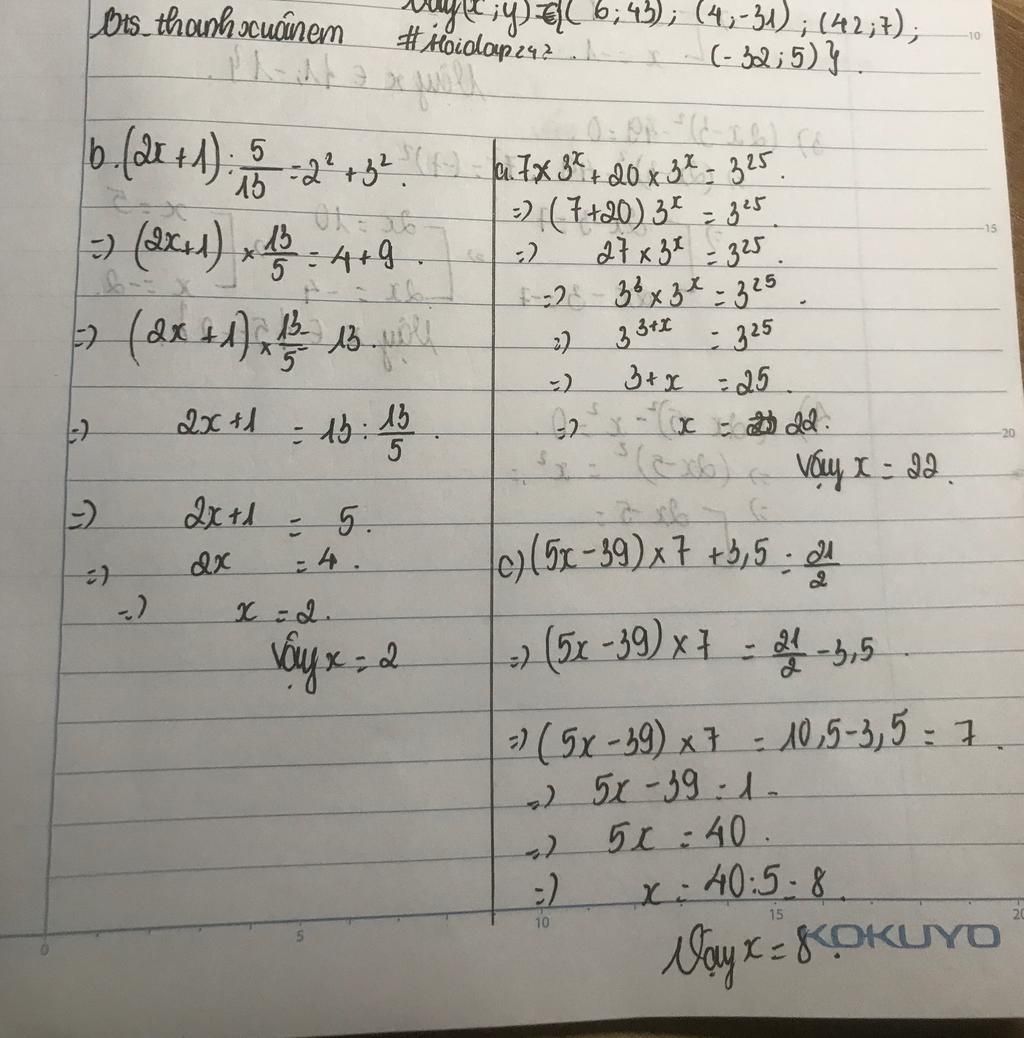 Vậy (x;y) = {( 6; 43) ; (4; -31) ; (42; 7);
Bts_thanhxuânem #Hoidap247. (-32; 5) }.
b. (2x + 1) : 5/13 = 2² + 3².
=> (2x+1) × 13/5 = 4 + 9.
=> (2x + 1) × 13/5 = 13.
=> 2x + 1 = 13 : 13/5.
=> 2x + 1 = 5.
=> 2x = 4.
=> x = 2.
Vậy x = 2
a. 7 × 3ˣ + 20 × 3ˣ = 3²⁵.
=> (7+20) 3ˣ = 3²⁵.
=> 27 × 3ˣ = 3²⁵.
=> 3³ × 3ˣ = 3²⁵.
=> 3³⁺ˣ = 3²⁵
=> 3 + x = 25.
=> x = 22.
Vậy x = 22.
c) (5x - 39) × 7 + 3,5 = 21/2
=> (5x - 39) × 7 = 21/2 - 3,5.
=> (5x - 39) × 7 = 10,5 - 3,5 = 7.
=> 5x - 39 = 1.
=> 5x = 40.
=> x = 40 : 5 = 8.
Vậy x = 8.
0 5 10 15 20
KOKUYO
10
15
20